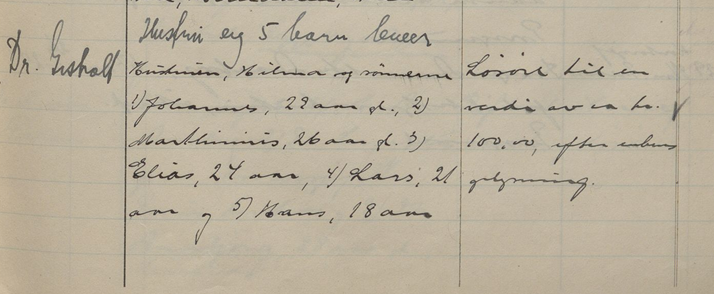 Hustru og 5 barn lever
Dr. Gishalf
Kudrun, Hilma og sönnerne
1) Johannes, 29 aar gl., 2)
Marthinius, 26 aar gl. 3)
Elias, 24 aar, 4) Lars, 21
aar og 5) Hans, 18 aar
Lösöre til en
verdi av ca kr.
100,00, efter enkens
opgivning.